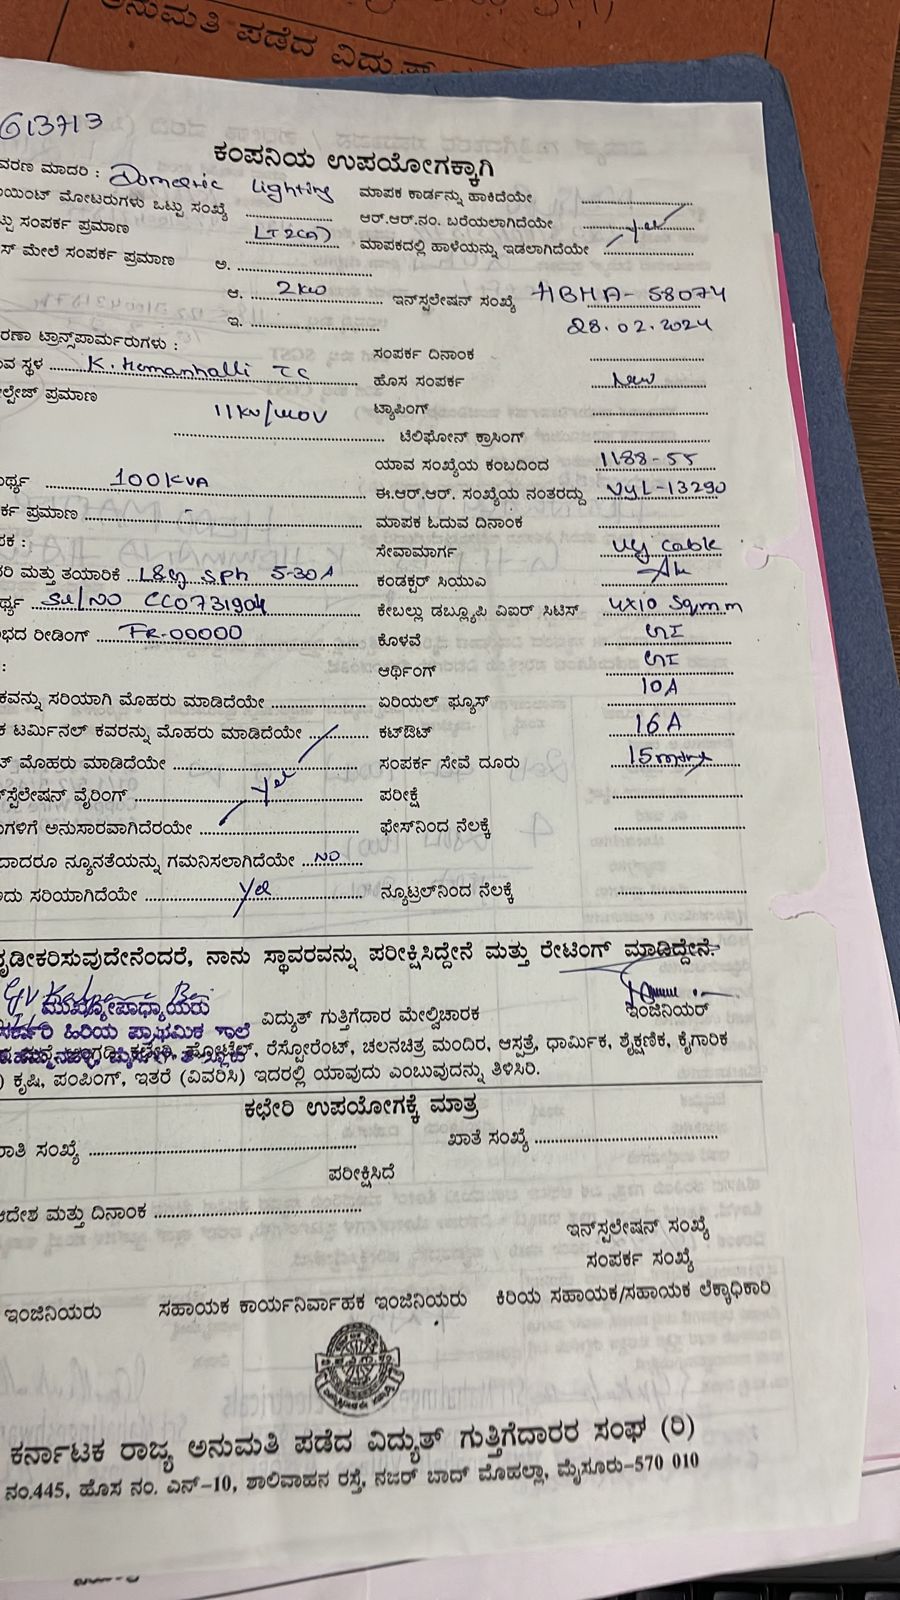 ನುಮತಿ ಪಡೆದ ವಿದ್ಯುತ್
613713
ಕಂಪನಿಯ ಉಪಯೋಗಕ್ಕಾಗಿ
ವರಣ ಮಾದರಿ : Domestic Lighting ಮಾಪಕ ಕಾರ್ಡನ್ನು ಹಾಕಿದೆಯೇ
ಯಿಂಟ್ ಮೋಟರುಗಳು ಒಟ್ಟು ಸಂಖ್ಯೆ ಆರ್.ಆರ್.ನಂ. ಬರೆಯಲಾಗಿದೆಯೇ Yes
ಟ್ಟು ಸಂಪರ್ಕ ಪ್ರಮಾಣ LT2(a) ಮಾಪಕದಲ್ಲಿ ಹಾಳೆಯನ್ನು ಇಡಲಾಗಿದೆಯೇ
ಸ್ ಮೇಲೆ ಸಂಪರ್ಕ ಪ್ರಮಾಣ ಅ.
ಆ. 2KW ಇನ್‌ಸ್ಟಲೇಷನ್ ಸಂಖ್ಯೆ HBHA-58074
ಇ. 28.02.2024
ರಣಾ ಟ್ರಾನ್ಸ್‌ಪಾರ್ಮರುಗಳು :
ಸಂಪರ್ಕ ದಿನಾಂಕ
ವ ಸ್ಥಳ K. Hemanhalli TC ಹೊಸ ಸಂಪರ್ಕ New
ಲ್ಟೇಜ್ ಪ್ರಮಾಣ 11KV/ ಟ್ಯಾಪಿಂಗ್
ಟೆಲಿಫೋನ್ ಕ್ರಾಸಿಂಗ್
ಯಾವ ಸಂಖ್ಯೆಯ ಕಂಬದಿಂದ 1188-55
ರ್ಥ್ಯ 100KVA ಈ.ಆರ್.ಆರ್. ಸಂಖ್ಯೆಯ ನಂತರದ್ದು VYL-13290
ರ್ಕ ಪ್ರಮಾಣ - ಮಾಪಕ ಓದುವ ದಿನಾಂಕ
ರಕ : ಸೇವಾಮಾರ್ಗ UG cable
ರಿ ಮತ್ತು ತಯಾರಿಕೆ L&G Sph 5-30A ಕಂಡಕ್ಟರ್ ಸಿಯುಎ
ರ್ಥ್ಯ Sl/NO CC0731904 ಕೇಬಲ್ಲು ಡಬ್ಲ್ಯೂಪಿ ವಿಐರ್ ಸಿಟಿಸ್ 4x10 Sqmm
ಭದ ರೀಡಿಂಗ್ FR-00000 ಕೊಳವೆ GI
: ಆರ್ಥಿಂಗ್ GI
ಕವನ್ನು ಸರಿಯಾಗಿ ಮೊಹರು ಮಾಡಿದೆಯೇ ಏರಿಯಲ್ ಫ್ಯೂಸ್ 10A
ಕ ಟರ್ಮಿನಲ್ ಕವರನ್ನು ಮೊಹರು ಮಾಡಿದೆಯೇ ಕಟ್‌ಔಟ್ 16A
ಟ್ ಮೊಹರು ಮಾಡಿದೆಯೇ ಸಂಪರ್ಕ ಸೇವೆ ದೂರು 15mtrs
ನ್‌ಸ್ಟೆಲೇಷನ್ ವೈರಿಂಗ್ Yes ಪರೀಕ್ಷೆ
ಗಳಿಗೆ ಅನುಸಾರವಾಗಿದೆರಯೇ ಫೇಸ್‌ನಿಂದ ನೆಲಕ್ಕೆ
ದಾದರೂ ನ್ಯೂನತೆಯನ್ನು ಗಮನಿಸಲಾಗಿದೆಯೇ NO
ದು ಸರಿಯಾಗಿದೆಯೇ Yes ನ್ಯೂಟ್ರಲ್‌ನಿಂದ ನೆಲಕ್ಕೆ
ೃಡೀಕರಿಸುವುದೇನೆಂದರೆ, ನಾನು ಸ್ಥಾವರವನ್ನು ಪರೀಕ್ಷಿಸಿದ್ದೇನೆ ಮತ್ತು ರೇಟಿಂಗ್ ಮಾಡಿದ್ದೇನೆ.
ಮುಖ್ಯೋಪಾಧ್ಯಾಯರು ವಿದ್ಯುತ್ ಗುತ್ತಿಗೆದಾರ ಮೇಲ್ವಿಚಾರಕ ಇಂಜಿನಿಯರ್
ಸರ್ಕಾರಿ ಹಿರಿಯ ಪ್ರಾಥಮಿಕ ಶಾಲೆ
ಹೋಟೆಲ್, ರೆಸ್ಟೋರೆಂಟ್, ಚಲನಚಿತ್ರ ಮಂದಿರ, ಆಸ್ಪತ್ರೆ, ಧಾರ್ಮಿಕ, ಶೈಕ್ಷಣಿಕ, ಕೈಗಾರಿಕ
) ಕೃಷಿ, ಪಂಪಿಂಗ್, ಇತರೆ (ವಿವರಿಸಿ) ಇದರಲ್ಲಿ ಯಾವುದು ಎಂಬುವುದನ್ನು ತಿಳಿಸಿರಿ.
ಕಛೇರಿ ಉಪಯೋಗಕ್ಕೆ ಮಾತ್ರ
ಾತಿ ಸಂಖ್ಯೆ ಖಾತೆ ಸಂಖ್ಯೆ
ಪರೀಕ್ಷಿಸಿದೆ
ಆದೇಶ ಮತ್ತು ದಿನಾಂಕ
ಇನ್‌ಸ್ಟಲೇಷನ್ ಸಂಖ್ಯೆ
ಸಂಪರ್ಕ ಸಂಖ್ಯೆ
ಇಂಜಿನಿಯರು ಸಹಾಯಕ ಕಾರ್ಯನಿರ್ವಾಹಕ ಇಂಜಿನಿಯರು ಕಿರಿಯ ಸಹಾಯಕ/ಸಹಾಯಕ ಲೆಕ್ಕಾಧಿಕಾರಿ
ಕರ್ನಾಟಕ ರಾಜ್ಯ ಅನುಮತಿ ಪಡೆದ ವಿದ್ಯುತ್ ಗುತ್ತಿಗೆದಾರರ ಸಂಘ (ರಿ)
ನಂ.445, ಹೊಸ ನಂ. ಎನ್-10, ಶಾಲಿವಾಹನ ರಸ್ತೆ, ನಜರ್ ಬಾದ್ ಮೊಹಲ್ಲಾ, ಮೈಸೂರು-570 010